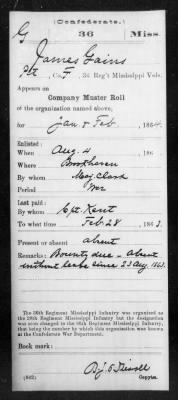 (Confederate.)
G 36 Miss.
James Gains
Pvt, Co. , 36 Reg't Mississippi Vols.
Appears on
Company Muster Roll
of the organization named above,
for Jan & Feb, 1864.
Enlisted:
When Aug 4, 186
Where Brookhaven
By whom Maj. Clark
Period War
Last paid:
By whom Capt. Kent
To what time Feb 28, 1863.
Present or absent absent
Remarks: Bounty due - absent
without leave since 23 Aug. 1863.
The 36th Regiment Mississippi Infantry was organized as
the Regiment Mississippi Infantry but the designation
was soon changed to the 36th Regiment Mississippi Infantry,
that being the number by which this organization was known at
the Confederate War Department.
Book mark:
(642)
Copyist.